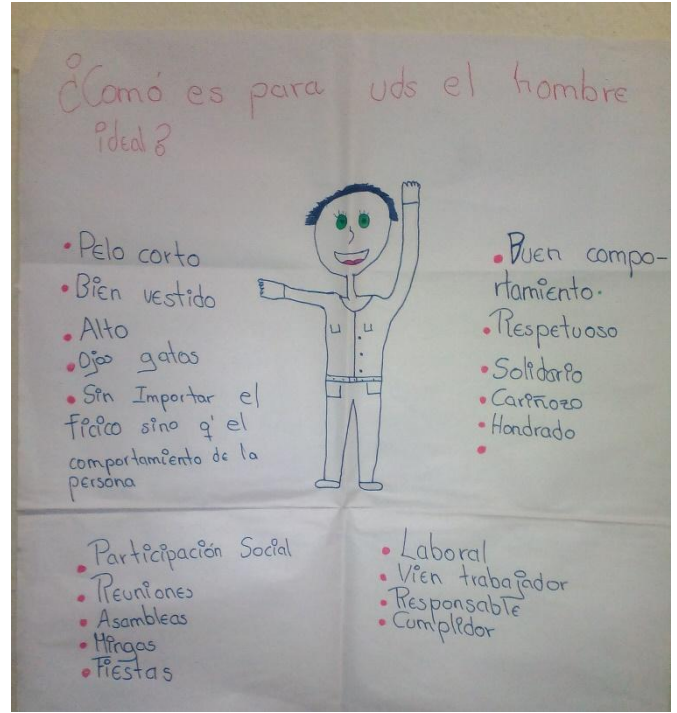 ¿Comó es para uds el hombre
ideal?
• Pelo corto
• Bien vestido
• Alto
• Ojos gatos
• Sin Importar el
ficico sino q' el
comportamiento de la
persona
• Buen compo-
rtamiento.
• Respetuoso
• Solidario
• Cariñozo
• Hondrado
•
• Participación Social
• Reuniones
• Asambleas
• Mingas
• Fiestas
• Laboral
• Vien trabajador
• Responsable
• Cumplidor